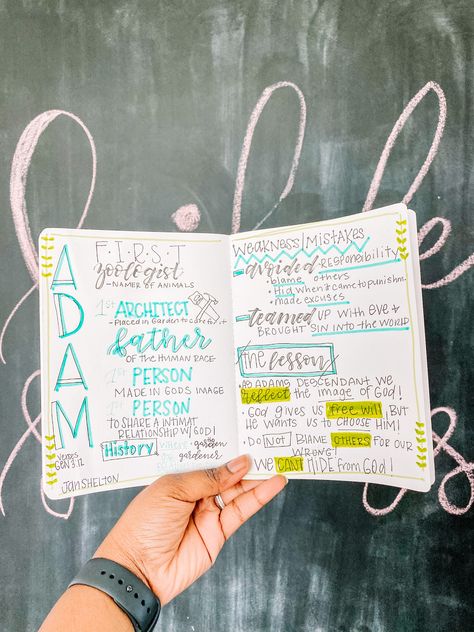 ADAM
FIRST
zoologist
- NAMER OF ANIMALS
1st ARCHITECT
- Placed in Garden to care for it
father
OF THE HUMAN RACE
1st PERSON
MADE IN GODS IMAGE
1st PERSON
TO SHARE A INTIMAT
RELATIONSHIP W/ GOD!
History
Place: garden
gardener
VERSES
GEN 3:12
JANSHELTON
WEAKNESS/MISTAKES
- avoided RESPONSIBILITY
• blame others
• Hid when it came to punishm.
• made excuses
- teamed UP WITH EVE &
BROUGHT SIN INTO THE WORLD
the lesson
• AS ADAMS DESCENDANT WE
reflect THE IMAGE OF GOD!
• GOD GIVES US FREE WILL, BUT
HE WANTS US TO CHOOSE HIM!
• DO NOT BLAME OTHERS FOR OUR
WRONG!
WE CANT HIDE FROM GOD!